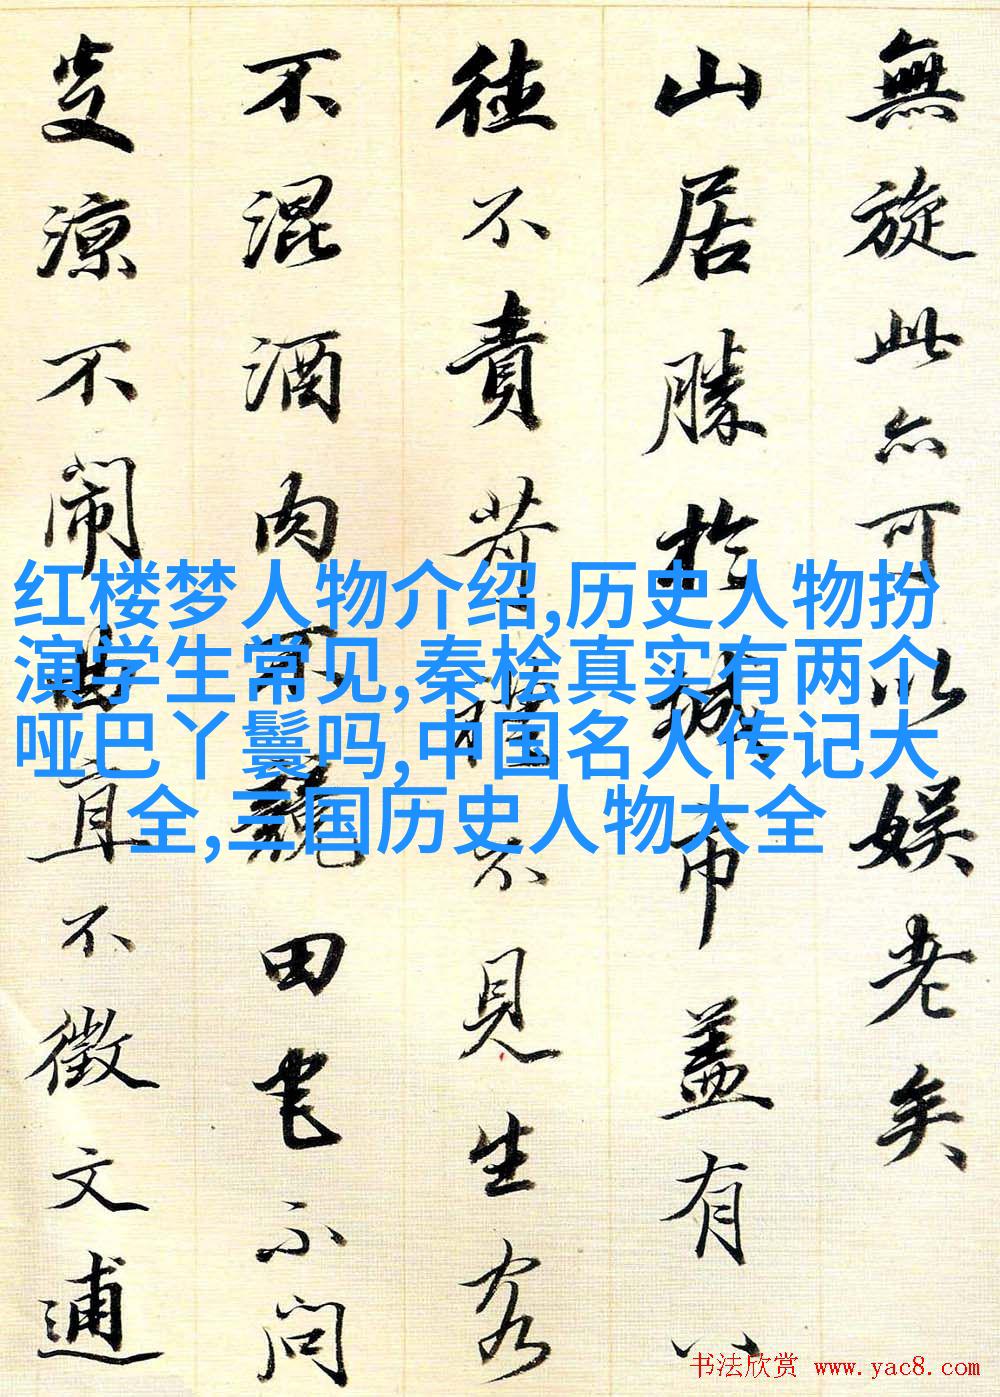 無旋此亦可以娱老矣
山居勝於城市盖有八
德不責苛禮不見生客
不混酒肉不競田宅不問
炎凉不闹曲直不徵文逋
红楼梦人物介绍,历史人物扮
演学生常见,秦桧真实有两个
哑巴丫鬟吗,中国名人传记大
全,三国历史人物大全
书法欣赏 www.yac8.com